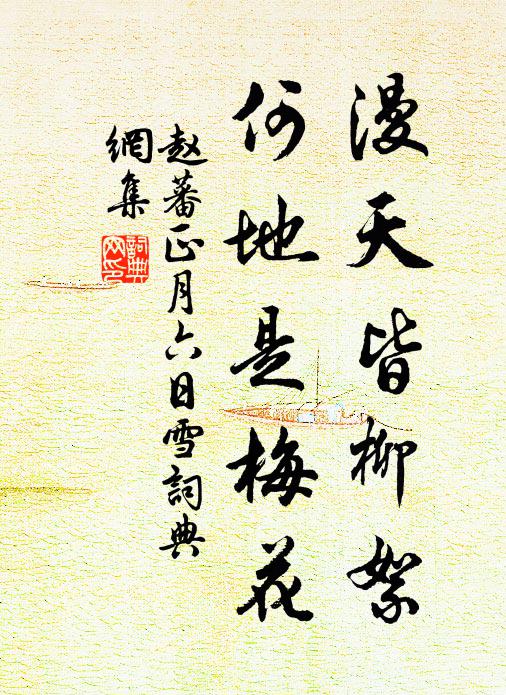 漫天皆柳絮
何地是梅花
赵蕃正月六日雪詞典
網集
詞典网印